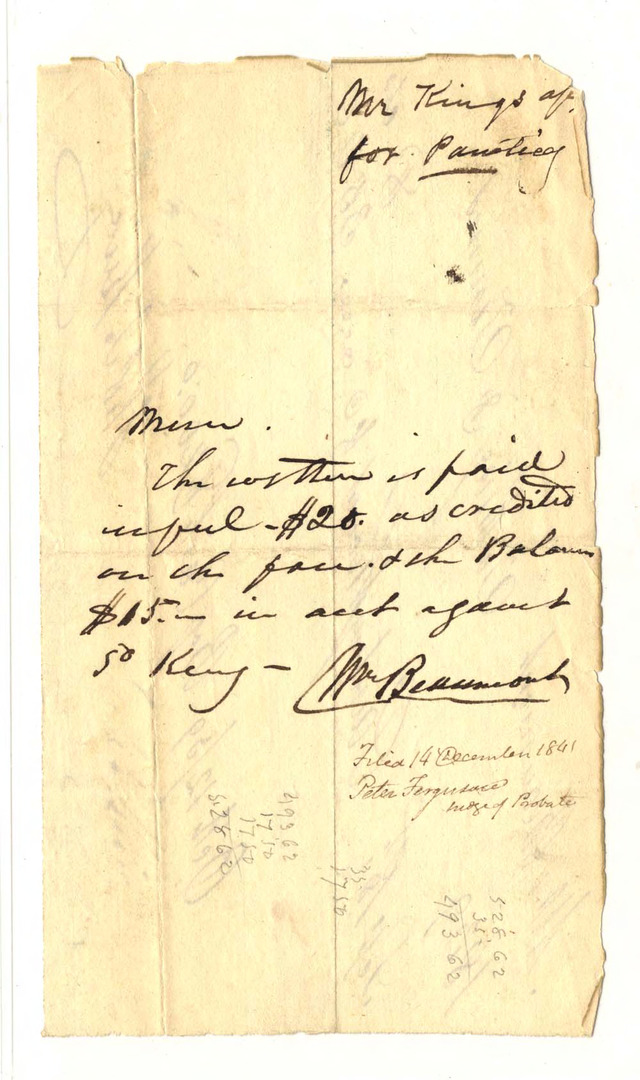 Mr Kings
for
Mem.
The within is paid
in full - $20. as credited
on the face. & the Balance
$15. - in acct against
sd King - Wm Beaumont
Filed 14 December 1841
Peter Ferguson
Judge of Probate
493 62
17 50
17 50
528 62
35
17 50
528 62
35
493 62